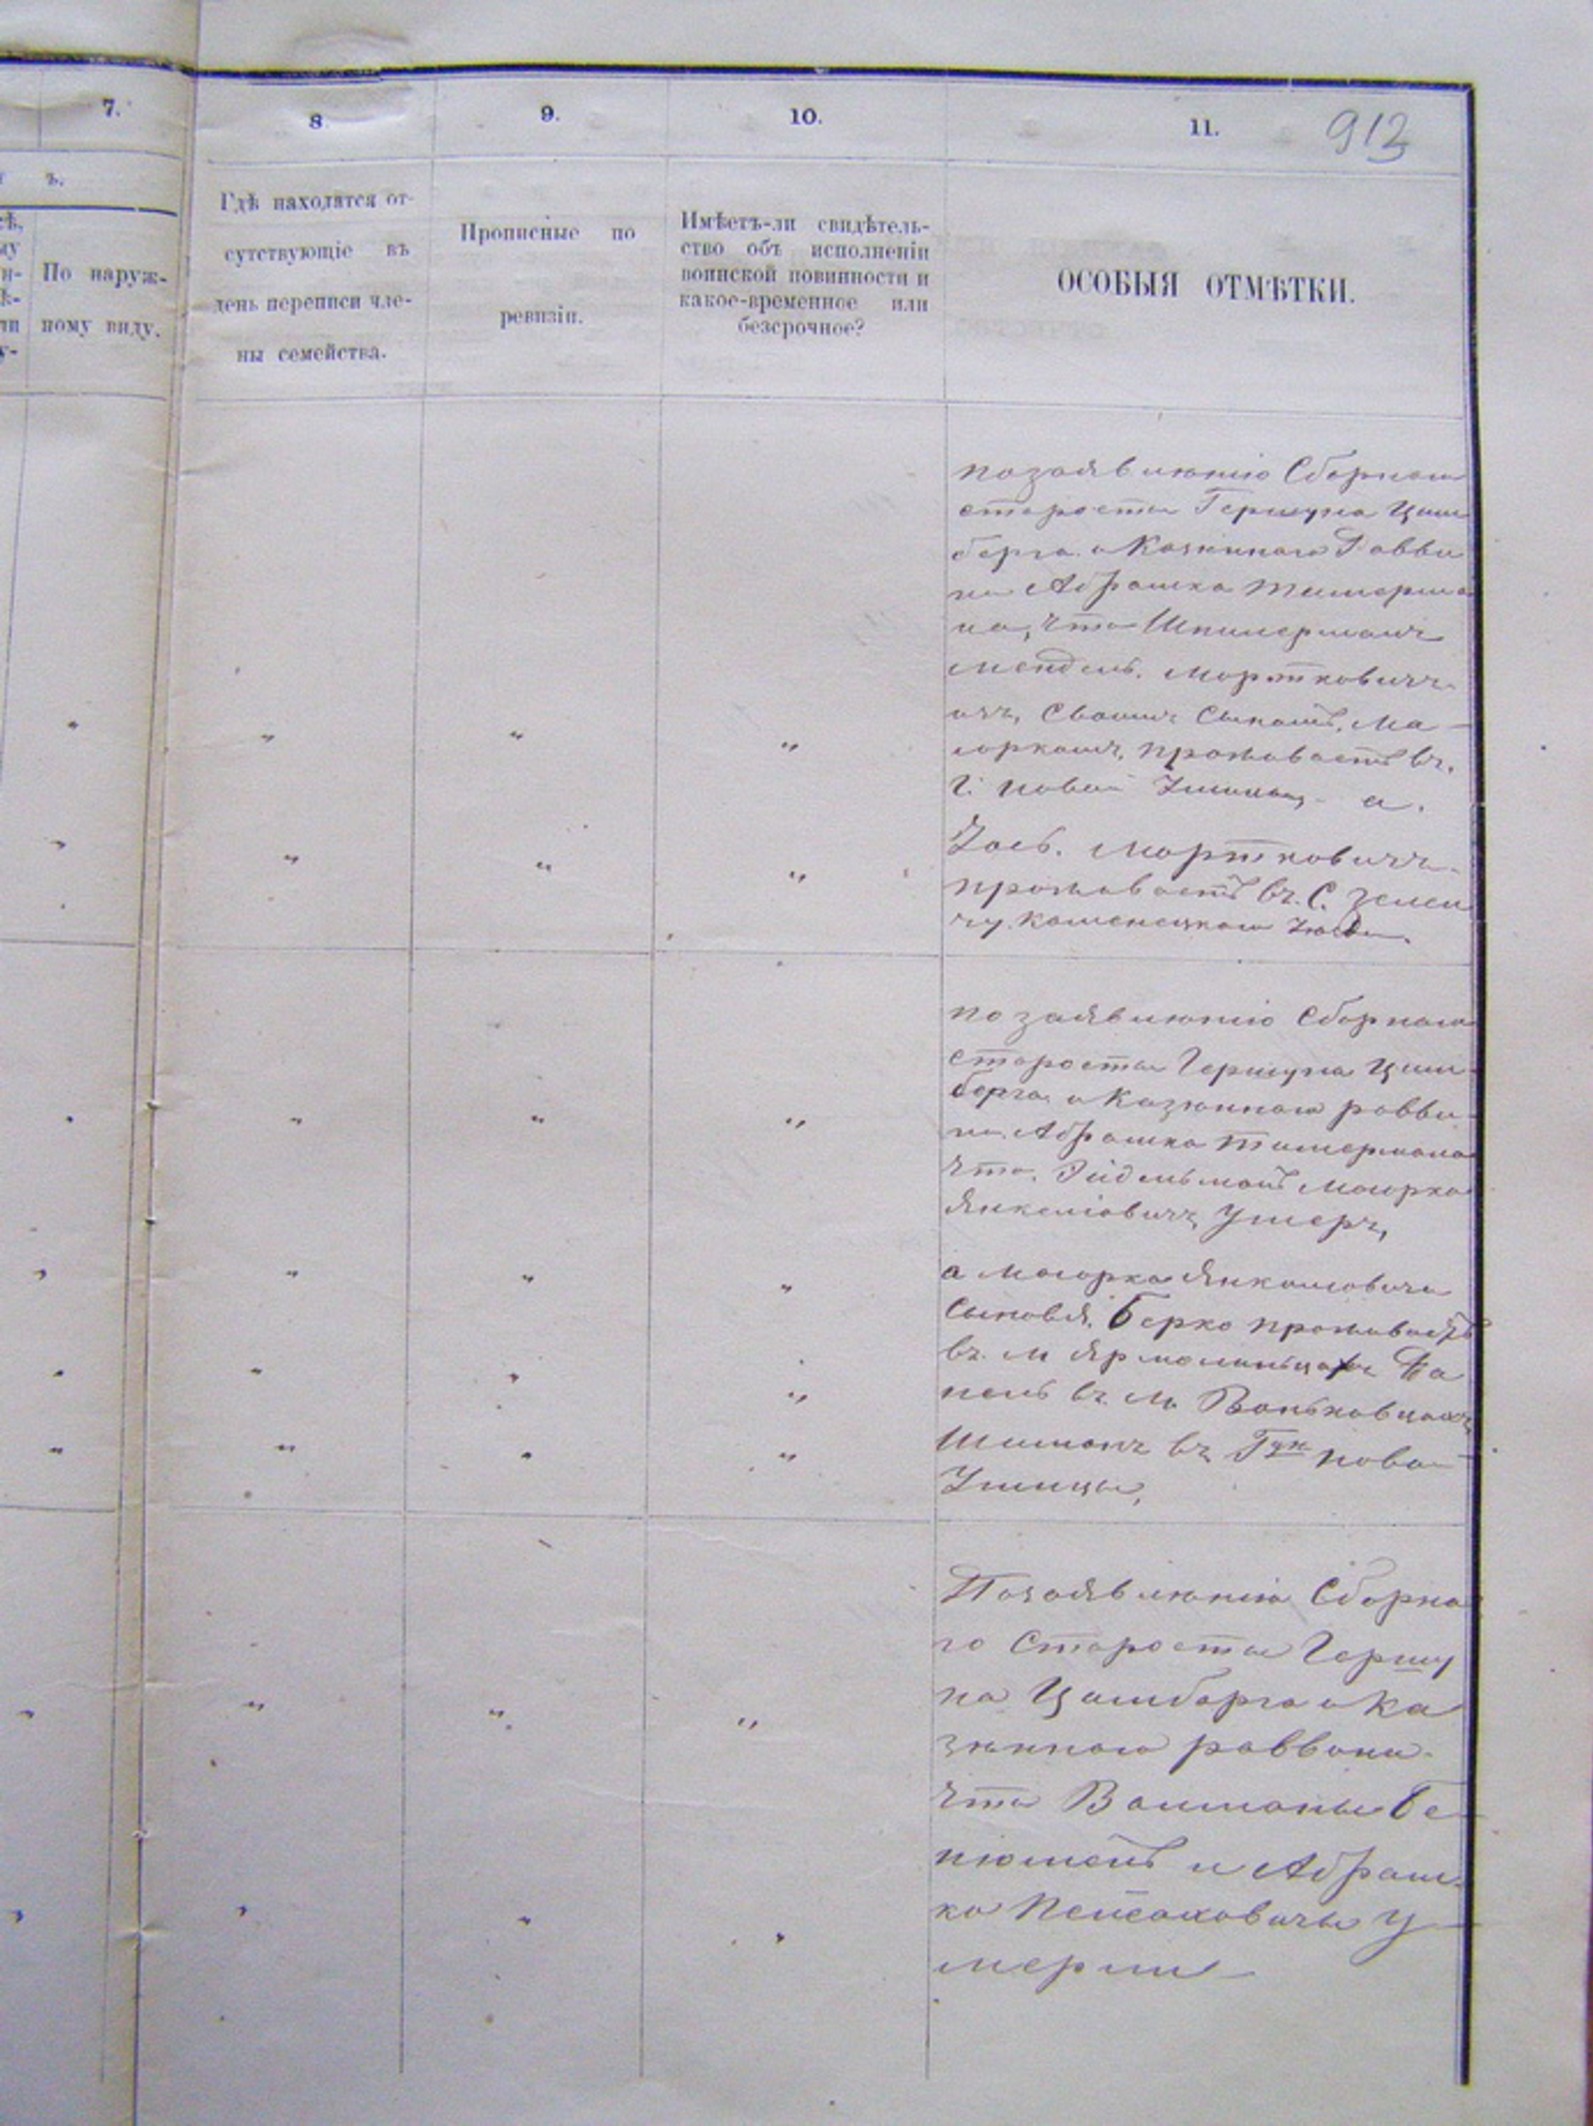 7.
8.
9.
10.
11.
913
ъ.
По наруж-
ному виду.
Гдѣ находятся от-
сутствующіе въ
день переписи чле-
ны семейства.
Прописные по
ревизіи.
Имѣетъ-ли свидѣтель-
ство объ исполненіи
воинской повинности и
какое-временное или
безсрочное?
ОСОБЫЯ ОТМѢТКИ.
по заявленію Сборнаго
старосты Гершуна Цим
берга и Казеннаго Равви
на Абрамка Тимерма
на, что Шпилерманъ
Мендель Мортковичъ
съ своимъ сыномъ, Ма
іоркомъ, проживаетъ въ
г. Новой Ушицы а
Іось Мортковичъ
проживаетъ въ с. Зелен
чу Каменецкаго
по заявленію Сборнаго
старосты Гершуна Цим
берга и Казеннаго равви
на Абрамка Тимермана
что Эйдельманъ Маіорко
Янкеліовичъ Умеръ,
а Маіорка Янкеліовича
Сыновья, Берко проживаетъ
въ м Ярмолинцахъ
въ м. Воньковцахъ
Шиманъ въ Новой
Ушицы,
По заявленію Сборна
го Старосты Гершу
на Цимберга и Ка
зеннаго раввина
что Ваиманы Бе
ніоменъ и Абрам
ко Пейсаховичы У
мерли